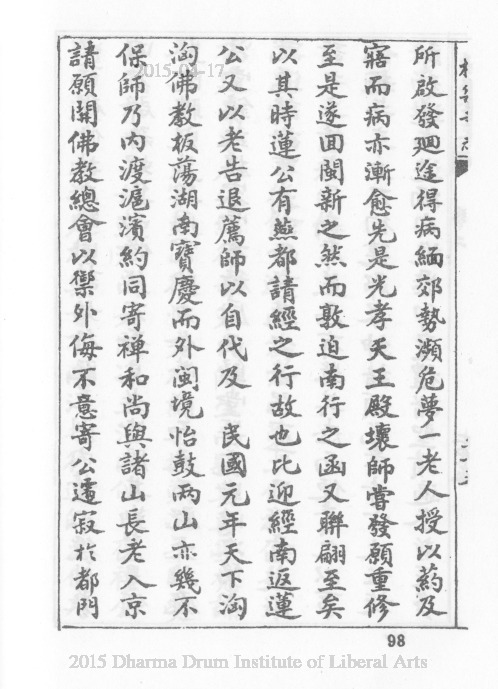 所啟發廻途得病緬郊勢瀕危夢一老人授以葯及
寤而病亦漸愈先是光孝天王殿壞師嘗發願重修
至是遂回閩新之然而敦迫南行之函又聯翩至矣
以其時蓮公有燕都請經之行故也比迎經南返蓮
公又以老告退薦師以自代及 民國元年天下洶
洶佛教板蕩湖南寶慶而外閩境怡鼓兩山亦幾不
保師乃內渡滬濱約同寄禪和尚與諸山長老入京
請願開佛教總會以禦外侮不意寄公遷寂於都門
98
2015-04-17
2015 Dharma Drum Institute of Liberal Arts